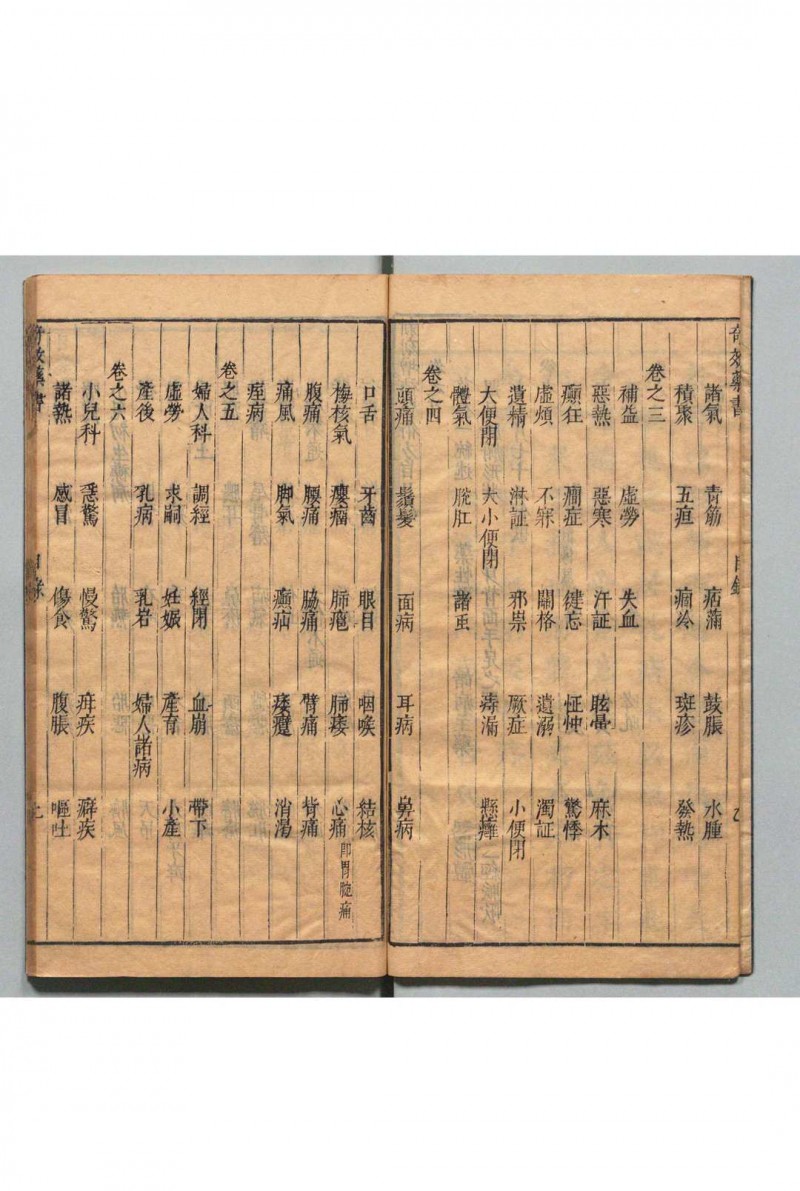 奇效藥書 目錄
諸氣 青筋 痞滿 鼓脹 水腫
積聚 五疸 痼冷 斑疹 發熱
卷之三
補益 虛勞 失血
惡熱 惡寒 汗証 眩暈 麻木
癲狂 癇症 健忘 怔忡 驚悸
虛煩 不寐 關格 遺溺 濁証
遺精 淋証 邪祟 厥症 小便閉
大便閉 大小便閉 痔漏 懸癰
體氣 脫肛 諸虫
卷之四
頭痛 鬚髮 面病 耳病 鼻病
口舌 牙齒 眼目 咽喉 結核
梅核氣 癭瘤 肺癰 肺痿 心痛 即胃脘痛
腹痛 腰痛 脇痛 臂痛 背痛
痛風 脚氣 㿗疝 痿躄 消渴
痓病
卷之五
婦人科 調經 經閉 血崩 帶下
虛勞 求嗣 妊娠 產育 小產
產後 乳病 乳岩 婦人諸病
卷之六
小兒科 急驚 慢驚 疳疾 癖疾
諸熱 感冒 傷食 腹脹 嘔吐
奇效藥書 目錄